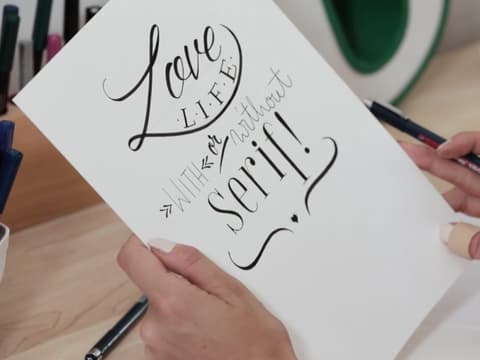 Love
L·I·F·E·
»WITH«or/without
Serif!